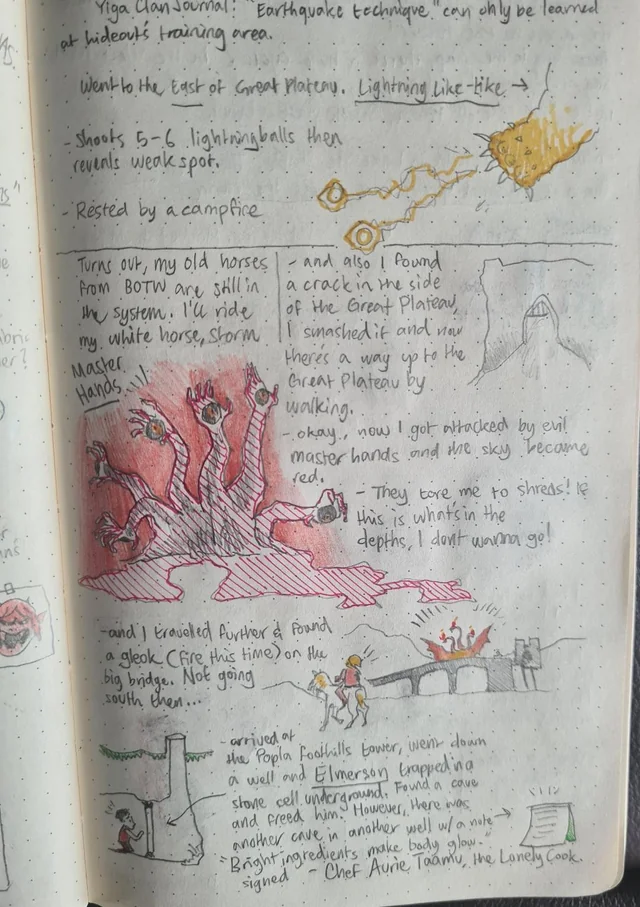 Yiga Clan Journal: "Earthquake technique" can only be learned
at hideout's training area.
Went to the East of Great Plateau. Lightning Like-like →
- Shoots 5-6 lightning balls then
reveals weak spot.
- Rested by a campfire
Turns out, my old horses
from BOTW are still in
the system. I'll ride
my white horse, Storm
- and also I found
a crack in the side
of the Great Plateau,
I smashed it and now
there's a way up to the
Great Plateau by
walking.
Master
Hands
- okay, now I got attacked by evil
master hands and the sky became
red.
- They tore me to shreds! If
this is what's in the
depths, I dont wanna go!
- and I travelled further & found
a gleok (Fire this time) on the
big bridge. Not going
south then...
- arrived at
the Popla Foothills tower, went down
a well and Elmerson trapped in a
stone cell underground. Found a cave
and freed him. However, there was
another cave in another well w/ a note →
"Bright ingredients make body glow."
signed - Chef Aurie, Taamu, the Lonely Cook.